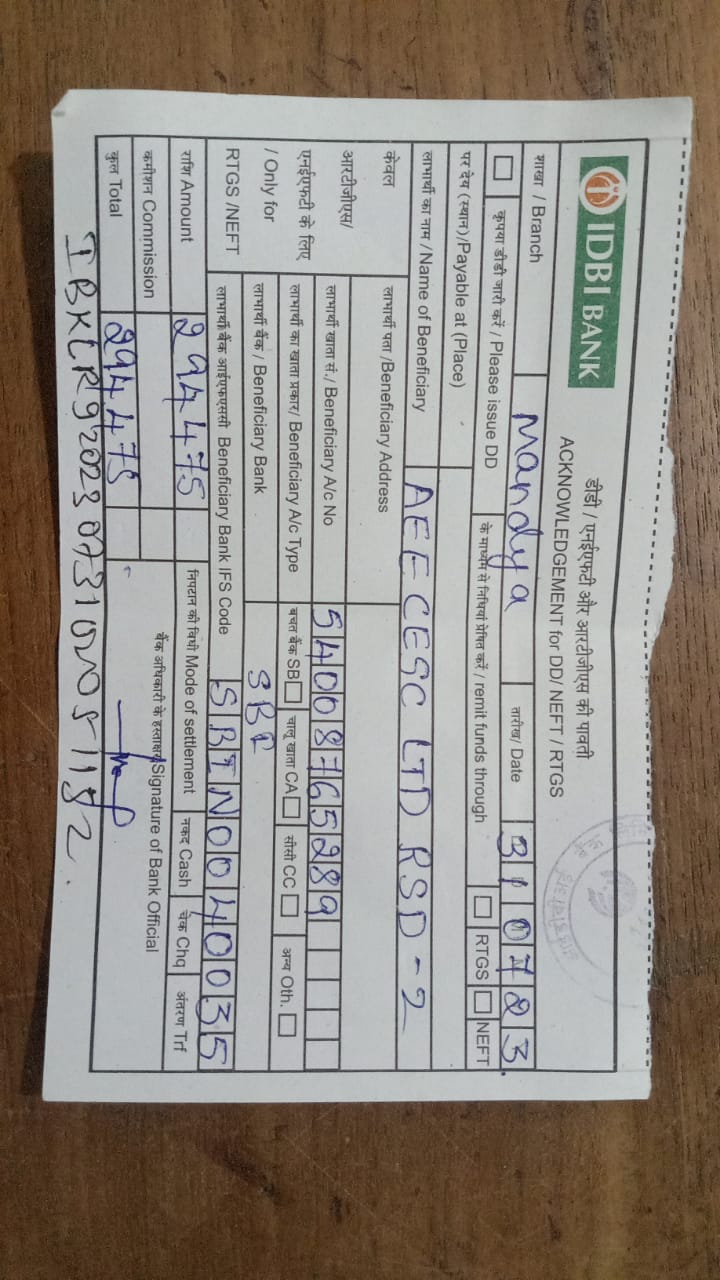 IDBI BANK
डीडी / एनईएफटी और आरटीजीएस की पावती
ACKNOWLEDGEMENT for DD/ NEFT / RTGS
शाखा / Branch Mandya तारीख/ Date 31 07 23
कृपया डीडी जारी करें / Please issue DD के माध्यम से निधियां प्रेषित करें / remit funds through RTGS NEFT
पर देय (स्थान)/Payable at (Place)
लाभार्थी का नाम / Name of Beneficiary AEE CESC LTD RSD-2
केवल
आरटीजीएस/
एनईएफटी के लिए
/ Only for
RTGS /NEFT
लाभार्थी पता /Beneficiary Address
लाभार्थी खाता सं./ Beneficiary A/c No 54008765289
लाभार्थी का खाता प्रकार/ Beneficiary A/c Type बचत बैंक SB चालू खाता CA सीसी CC अन्य Oth.
लाभार्थी बैंक / Beneficiary Bank SBI
लाभार्थी बैंक आईएफएससी Beneficiary Bank IFS Code SBIN0040035
राशि Amount 294475 निपटान की विधी Mode of settlement नकद Cash चेक Chq अंतरण Trf
कमीशन Commission बैंक अधिकारी के हस्ताक्षर/Signature of Bank Official
कुल Total 294475